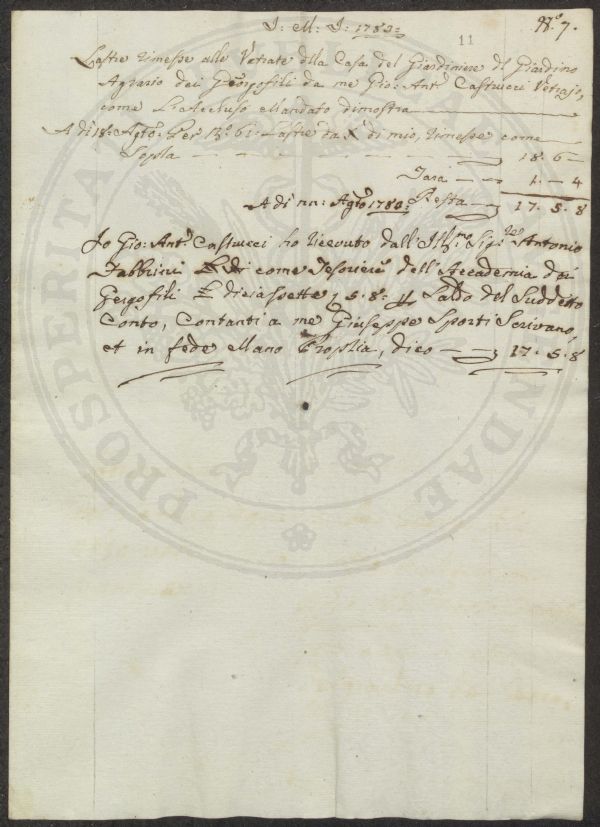 J: M: J: 1780:
N.º 7.
11
Lastre rimesse alle Vetrate della Casa del Giardiniere del Giardino
Agrario dei Georgofili da me Gio: Ant.º Castrucci Vetrajo,
come L'Accluso Mandato dimostra
A dì 18: Agto: Per N.º 61: Lastre da di mio, rimesse come
Sopra 18. 6 —
Tara 1. — 4
A dì Agto 1780: Resta 17. 5. 8
Io Gio: Ant.º Castrucci ho ricevuto dall'Ill:mo Sig:re Antonio
Fabbrini come Tesoriere dell'Accademia dei
Georgofili £ diciassette 5. 8. Saldo del Suddetto
Conto, Contanti a me Giuseppe Sporti Scrivano,
et in fede Mano Proplia, dico 17. 5. 8
PROSPERITATI